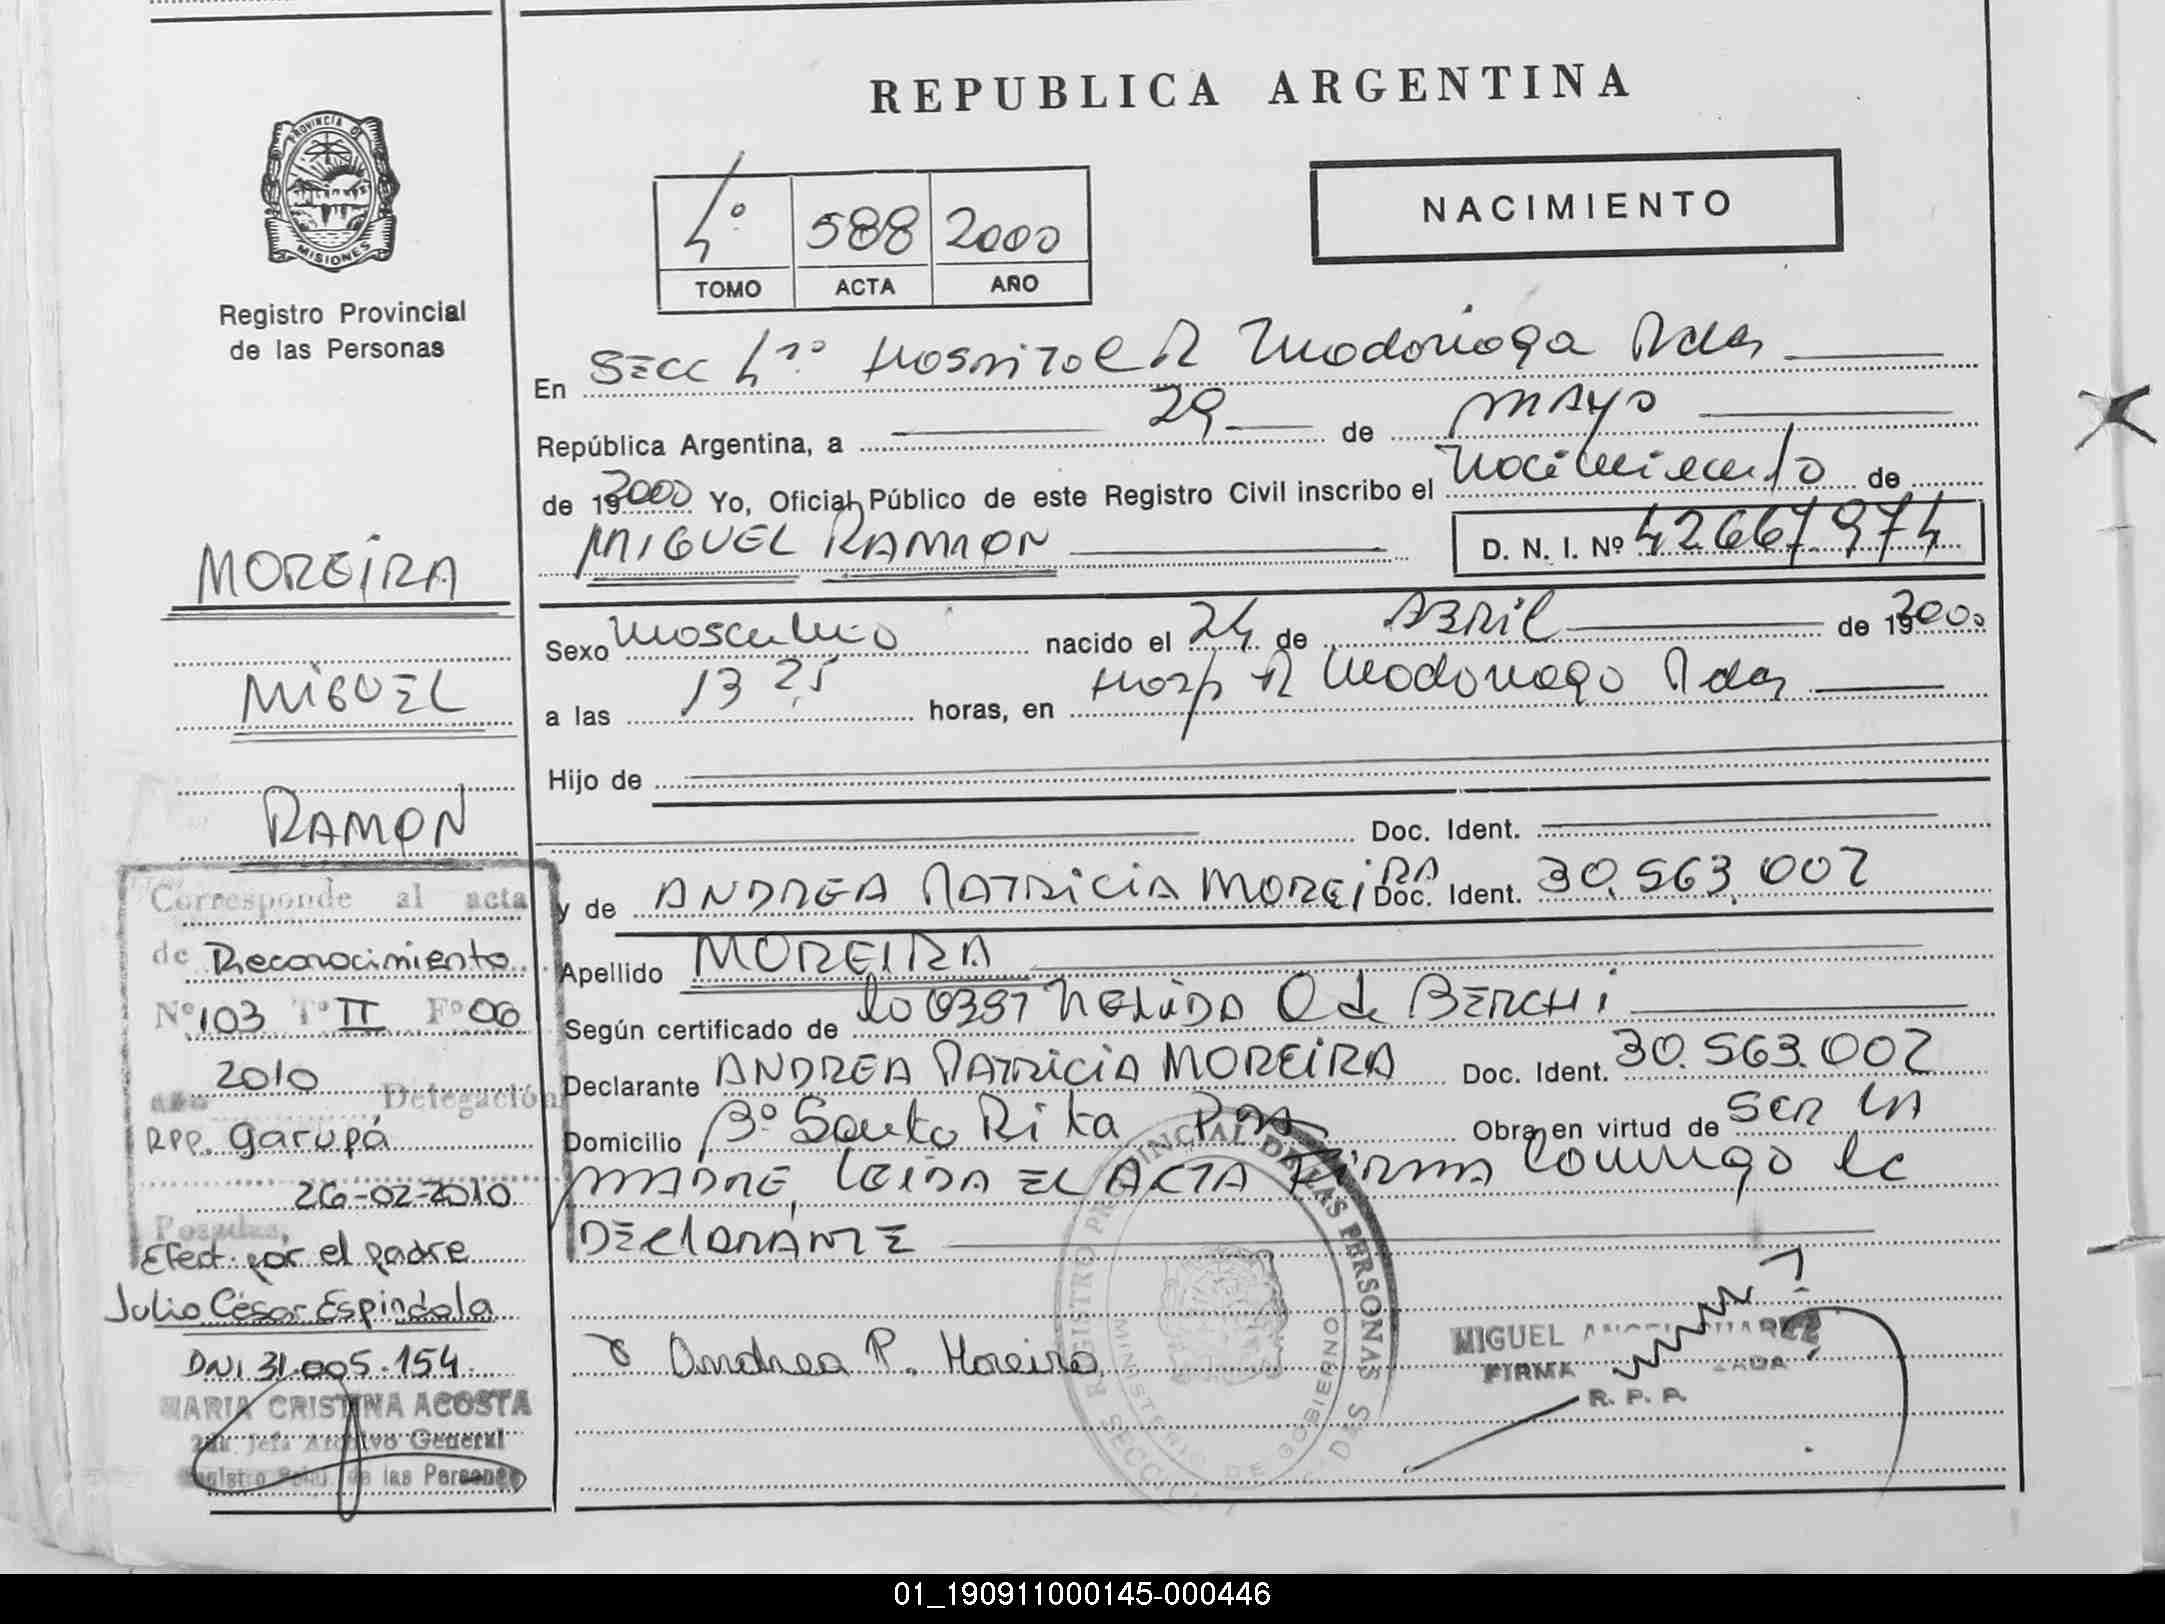 REPUBLICA ARGENTINA
PROVINCIA DE
MISIONES
Registro Provincial
de las Personas
4º 588 2000
TOMO ACTA AÑO
NACIMIENTO
En SECC 4º Hospital R Madariaga Pdas
República Argentina, a 29 de MAYO
de 192000 Yo, Oficial Público de este Registro Civil inscribo el Nacimiento de
MIGUEL RAMON D. N. I. Nº 42667974
Sexo Masculino nacido el 24 de ABRIL de 192000
a las 13 25 horas, en Hosp R Madariaga Pdas
Hijo de
Doc. Ident.
y de ANDREA PATRICIA MOREIRA Doc. Ident. 30.563.002
Apellido MOREIRA
Según certificado de NELIDA O de BERCHI
Declarante ANDREA PATRICIA MOREIRA Doc. Ident. 30.563.002
Domicilio Bº Santa Rita Pdas Obra en virtud de SER LA
MADRE, LEIDA EL ACTA FIRMA conmigo la
DECLARANTE
Andrea P. Moreira
MIGUEL
FIRMA
R. P. P.
REGISTRO PROVINCIAL DE LAS PERSONAS
MINISTERIO DE GOBIERNO
MOREIRA
MIGUEL
RAMON
Corresponde al acta
de Reconocimiento
Nº 103 Tº II Fº 06
año 2010 Delegación
RPP. Garupá
Posadas, 26-02-2010
Efect. por el padre
Julio César Espindola
DNI 31.005.154.
MARIA CRISTINA ACOSTA
Jefa Archivo General
de las Personas
01_190911000145-000446